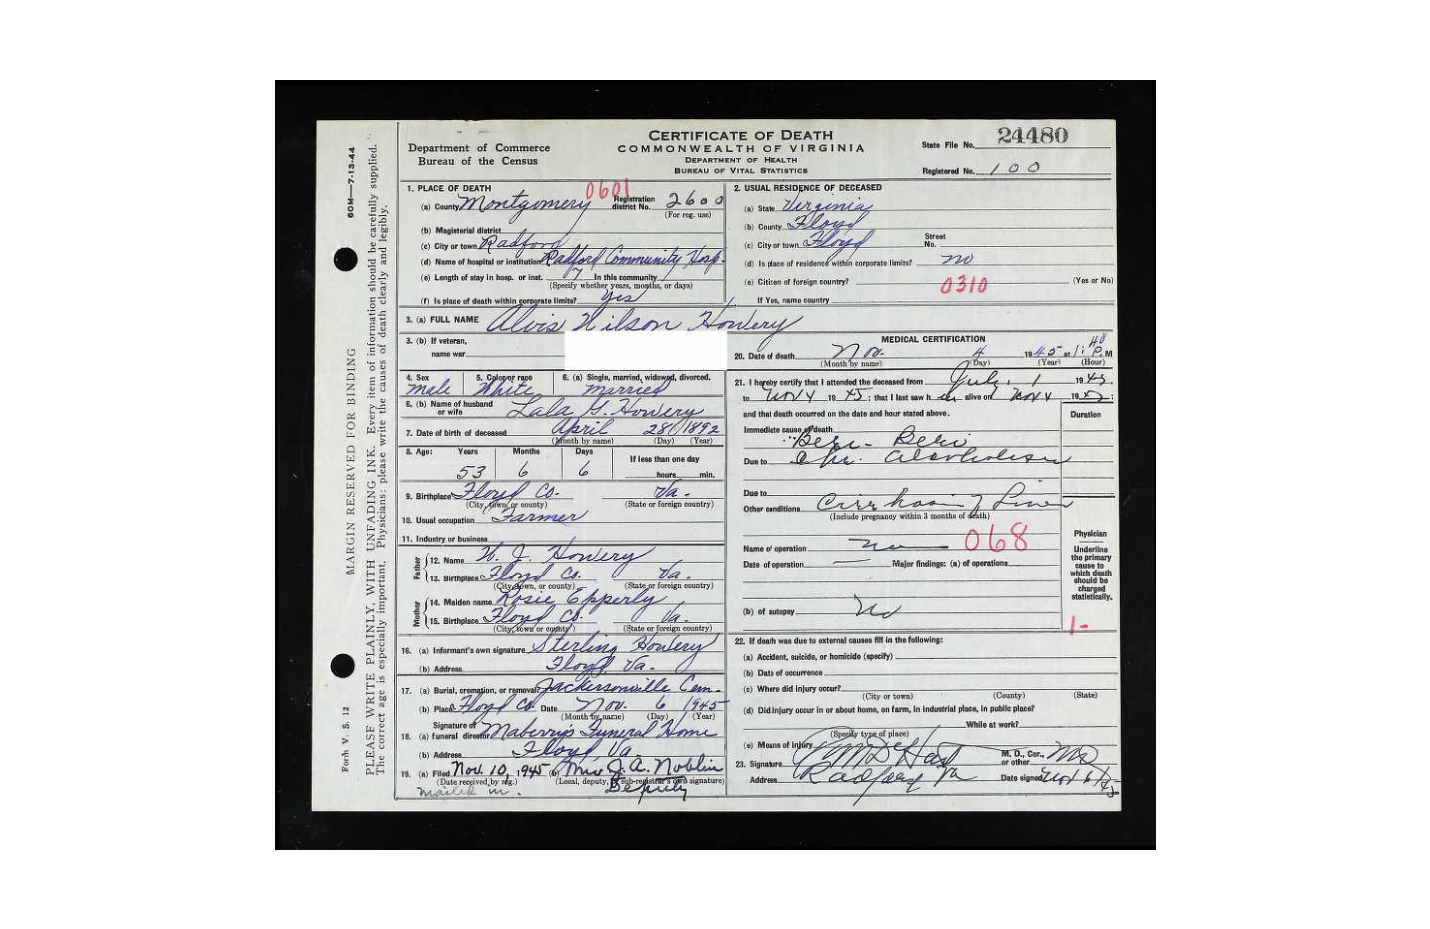 CERTIFICATE OF DEATH
COMMONWEALTH OF VIRGINIA
DEPARTMENT OF HEALTH
BUREAU OF VITAL STATISTICS
Department of Commerce
Bureau of the Census
State File No. 24480
Registered No. 100
60M—7-13-44
MARGIN RESERVED FOR BINDING
Form V. S. 12
PLEASE WRITE PLAINLY, WITH UNFADING INK. Every item of information should be carefully supplied.
The correct age is especially important. Physicians: please write the causes of death clearly and legibly.
1. PLACE OF DEATH 0601
(a) County Montgomery Registration district No. 2600
(For reg. use)
(b) Magisterial district
(c) City or town Radford
(d) Name of hospital or institution Radford Community Hosp.
(e) Length of stay in hosp. or inst. 7 In this community
(Specify whether years, months, or days)
(f) Is place of death within corporate limits? Yes
2. USUAL RESIDENCE OF DECEASED
(a) State Virginia
(b) County Floyd
(c) City or town Floyd Street No.
(d) Is place of residence within corporate limits? no
(e) Citizen of foreign country? 0310 (Yes or No)
If Yes, name country
3. (a) FULL NAME Alvis Wilson Howery
3. (b) If veteran,
name war
4. Sex 5. Color or race 6. (a) Single, married, widowed, divorced.
male White married
6. (b) Name of husband or wife Lala G. Howery
7. Date of birth of deceased April 28 1892
(Month by name) (Day) (Year)
8. Age: Years Months Days If less than one day
53 6 6 hours min.
9. Birthplace Floyd Co. Va.
(City, town or county) (State or foreign country)
10. Usual occupation Farmer
11. Industry or business
Father
12. Name W. J. Howery
13. Birthplace Floyd Co. Va.
(City, town, or county) (State or foreign country)
Mother
14. Maiden name Rosie Epperly
15. Birthplace Floyd Co. Va.
(City, town or county) (State or foreign country)
16. (a) Informant's own signature Sterling Howery
(b) Address Floyd, Va.
17. (a) Burial, cremation, or removal? Jackersonville Cem.
(b) Place Floyd Co. Date Nov. 6 1945
(Month by name) (Day) (Year)
18. Signature of (a) funeral director Maberry's Funeral Home
(b) Address Floyd Va.
19. (a) Filed Nov. 10, 1945 (b) Mrs J. A. Noblin
(Date received by reg.) (Local, deputy, or sub-registrar's own signature)
Deputy
MEDICAL CERTIFICATION
20. Date of death Nov. 4 1945 at 1:40 P.M
(Month by name) (Day) (Year) (Hour)
21. I hereby certify that I attended the deceased from July 1 1945,
to Nov 4 1945; that I last saw him alive on Nov 4 1945;
and that death occurred on the date and hour stated above. Duration
Immediate cause of death
Beri-Beri
Due to Chr. Alcoholism
Due to
Other conditions Cirrhosis of Liver
(Include pregnancy within 3 months of death)
Name of operation no 068
Date of operation — Major findings: (a) of operations
(b) of autopsy No
Physician
Underline the primary cause to which death should be charged statistically.
1-
22. If death was due to external causes fill in the following:
(a) Accident, suicide, or homicide (specify)
(b) Date of occurrence
(c) Where did injury occur?
(City or town) (County) (State)
(d) Did injury occur in or about home, on farm, in industrial place, in public place?
While at work?
(Specify type of place)
(e) Means of injury
23. Signature M. D., Cor., or other MD
Address Radford Va Date signed Nov 6/45